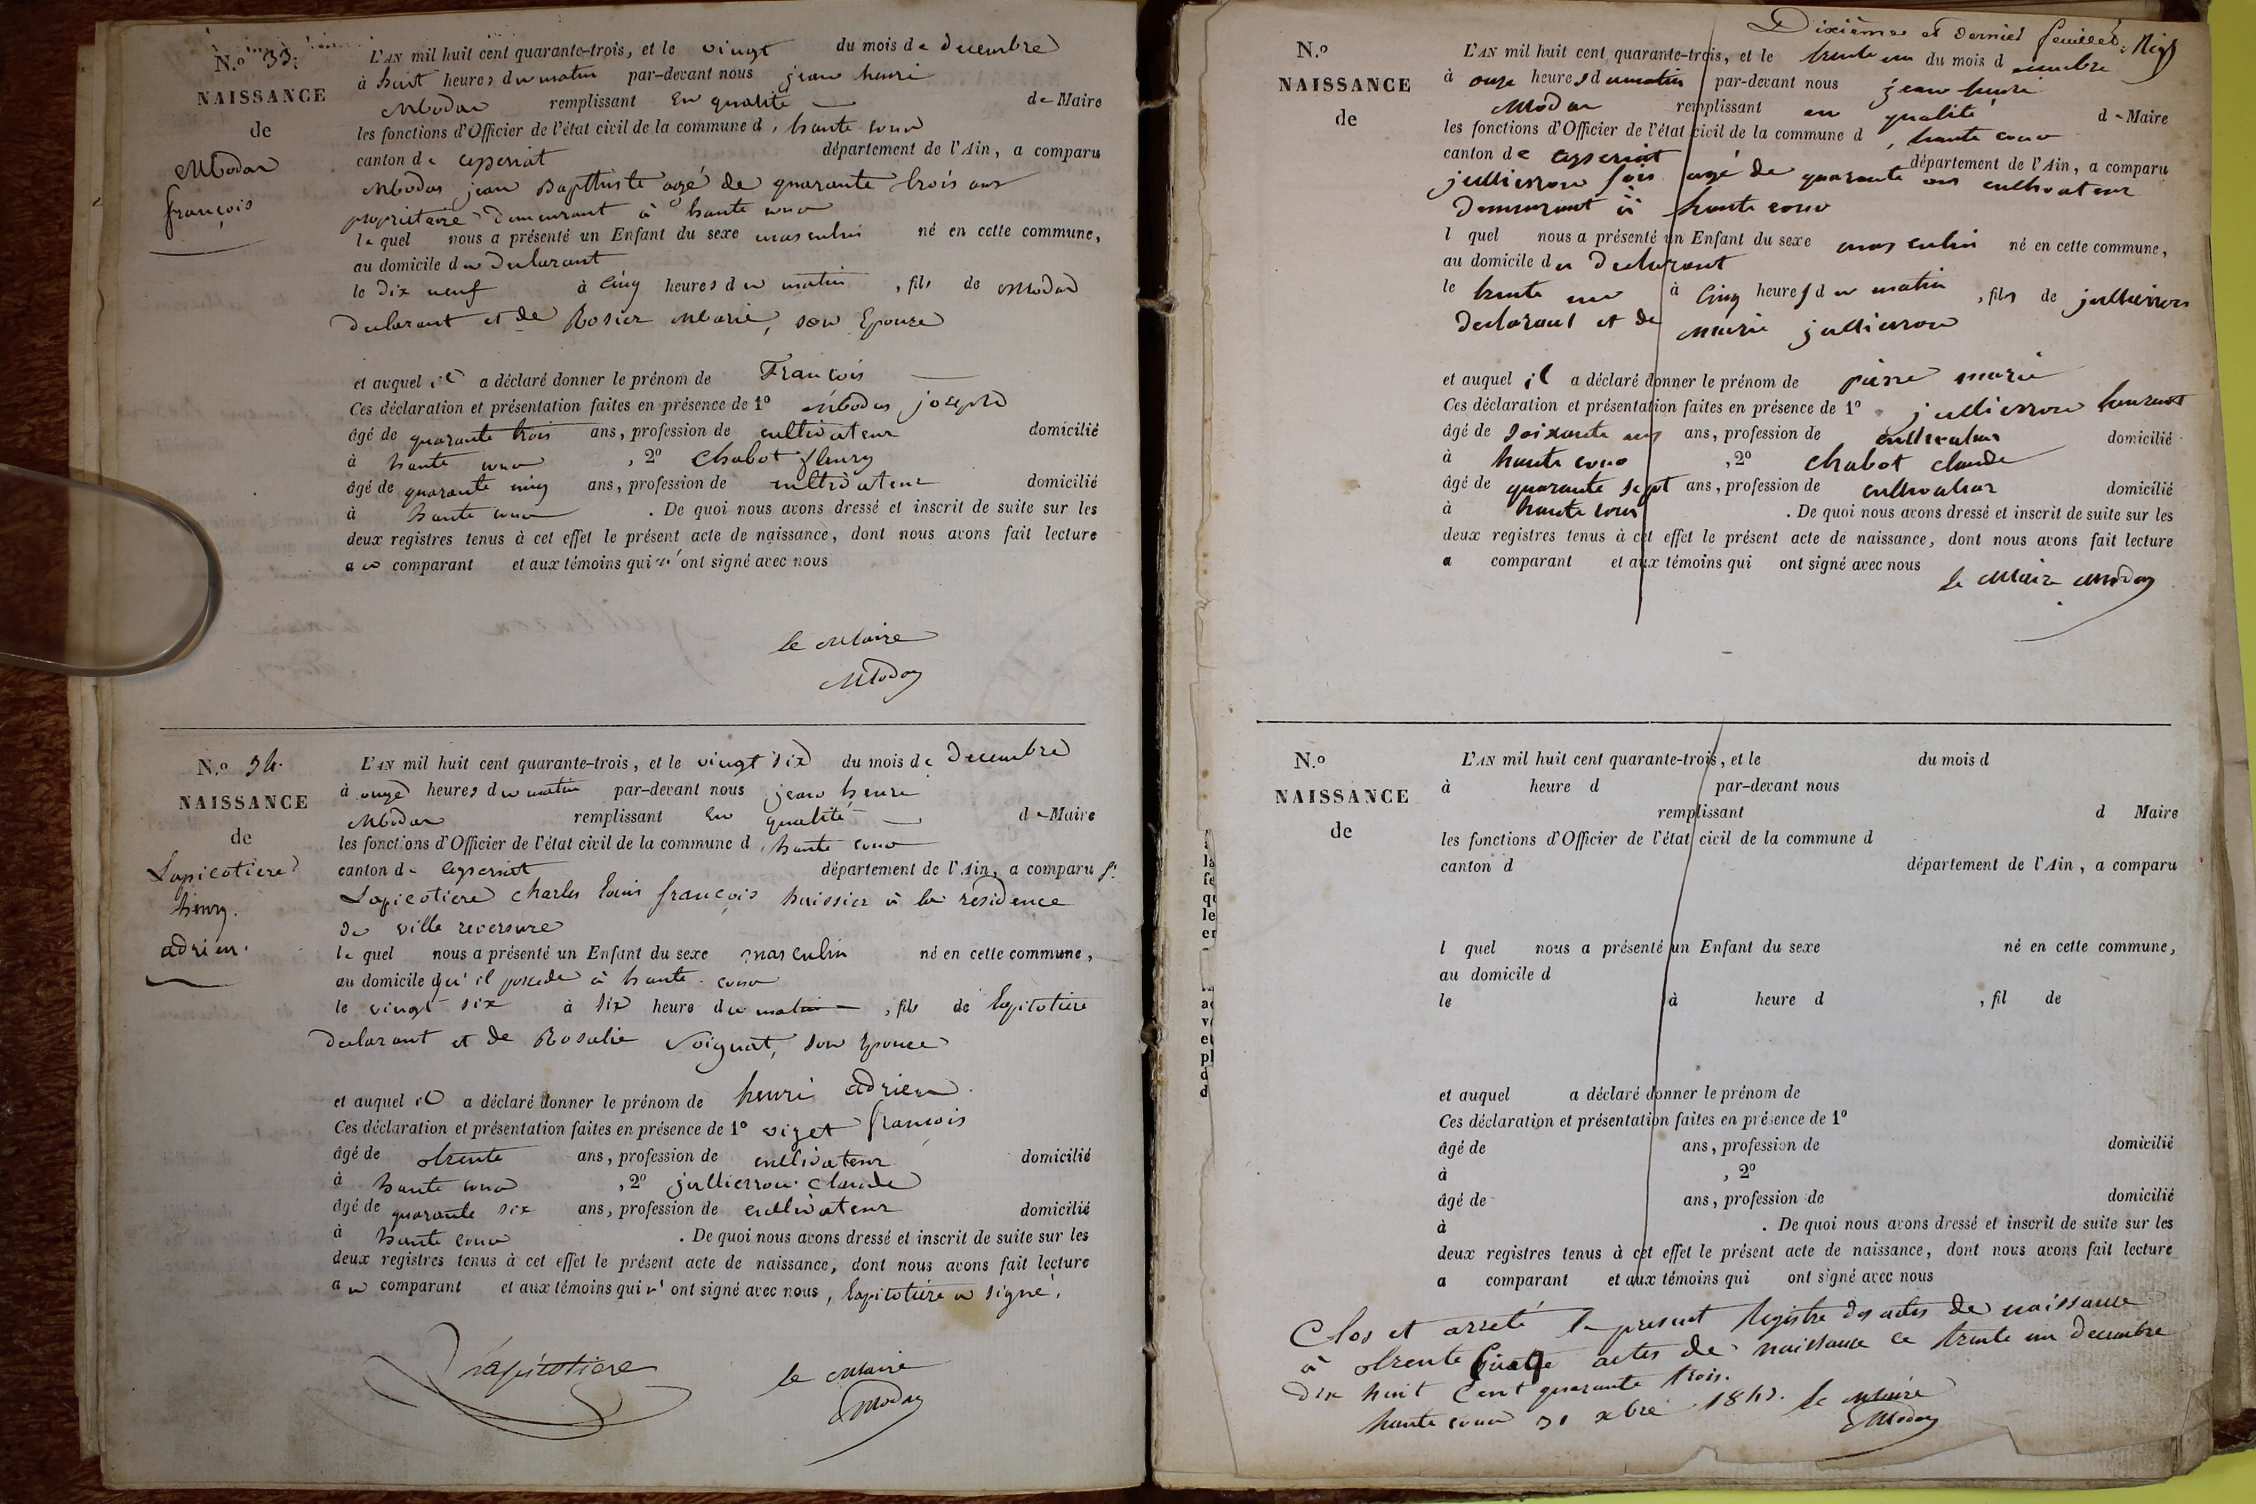 N.o 33.
NAISSANCE
de
Modas
françois
L'AN mil huit cent quarante-trois, et le vingt du mois de decembre
à huit heures du matin par-devant nous jean henri
Modas remplissant en qualité de Maire
les fonctions d'Officier de l'état civil de la commune d, haute cour
canton de ceyseriat département de l'Ain, a comparu
Modas jean Bapthiste agé de quarante trois ans
propriétaire demeurant à haute cour
le quel nous a présenté un Enfant du sexe masculin né en cette commune,
au domicile du declarant
le dix neuf à cinq heures du matin, fils de Modas
declarant et de Rosier Marie, son Epouse
et auquel il a déclaré donner le prénom de François
Ces déclaration et présentation faites en présence de 1º Modas joseph
âgé de quarante trois ans, profession de cultivateur domicilié
à haute cour, 2º Chabot fleury
âgé de quarante cinq ans, profession de cultivateur domicilié
à haute cour. De quoi nous avons dressé et inscrit de suite sur les
deux registres tenus à cet effet le présent acte de naissance, dont nous avons fait lecture
au comparant et aux témoins qui n'ont signé avec nous
le Maire
Modas
N.o 34.
NAISSANCE
de
Lapicotiere
henry.
adrien.
L'AN mil huit cent quarante-trois, et le vingt six du mois de decembre
à onze heures du matin par-devant nous jean henri
Modas remplissant en qualité de Maire
les fonctions d'Officier de l'état civil de la commune d, haute cour
canton de ceyseriat département de l'Ain, a comparu sr
Lapicotiere charles louis françois huissier à la résidence
de ville reversure
le quel nous a présenté un Enfant du sexe masculin né en cette commune,
au domicile qu'il possede à haute cour
le vingt six à six heure du matin, fils de lapicotiere
declarant et de Rosalie Soignat, son Epouse
et auquel il a déclaré donner le prénom de henri adrien
Ces déclaration et présentation faites en présence de 1º viget françois
âgé de trente ans, profession de cultivateur domicilié
à haute cour, 2º jullierron claude
âgé de quarante six ans, profession de cultivateur domicilié
à haute cour. De quoi nous avons dressé et inscrit de suite sur les
deux registres tenus à cet effet le présent acte de naissance, dont nous avons fait lecture
au comparant et aux témoins qui n'ont signé avec nous, lapicotiere a signé.
Lapicotiere
le Maire
Modas
Dixième et dernier feuillet
N.o
NAISSANCE
de
L'AN mil huit cent quarante-trois, et le trente un du mois d decembre
à onze heures du matin par-devant nous jean henri
Modas remplissant en qualité de Maire
les fonctions d'Officier de l'état civil de la commune d, haute cour
canton de ceyseriat département de l'Ain, a comparu
jullierron agé de quarante ans cultivateur
demeurant à haute cour
l quel nous a présenté un Enfant du sexe masculin né en cette commune,
au domicile du declarant
le trente un à cinq heures du matin, fils de jullierron
declarant et de Marie jullierron
et auquel il a déclaré donner le prénom de pierre marie
Ces déclaration et présentation faites en présence de 1º jullierron laurent
âgé de soixante ans, profession de cultivateur domicilié
à haute cour, 2º chabot claude
âgé de quarante sept ans, profession de cultivateur domicilié
à haute cour. De quoi nous avons dressé et inscrit de suite sur les
deux registres tenus à cet effet le présent acte de naissance, dont nous avons fait lecture
a comparant et aux témoins qui ont signé avec nous
le Maire Modas
N.o
NAISSANCE
de
L'AN mil huit cent quarante-trois, et le du mois d
à heure d par-devant nous
remplissant d Maire
les fonctions d'Officier de l'état civil de la commune d
canton d département de l'Ain, a comparu
l quel nous a présenté un Enfant du sexe né en cette commune,
au domicile d
le à heure d, fil de
et auquel a déclaré donner le prénom de
Ces déclaration et présentation faites en présence de 1º
âgé de ans, profession de domicilié
à, 2º
âgé de ans, profession de domicilié
à. De quoi nous avons dressé et inscrit de suite sur les
deux registres tenus à cet effet le présent acte de naissance, dont nous avons fait lecture
a comparant et aux témoins qui ont signé avec nous
Clos et arreté le present Registre des actes de naissance
à trente actes de naissance ce trente un decembre
dix huit cent quarante trois.
haute cour 31 xbre 1843. le Maire
Modas